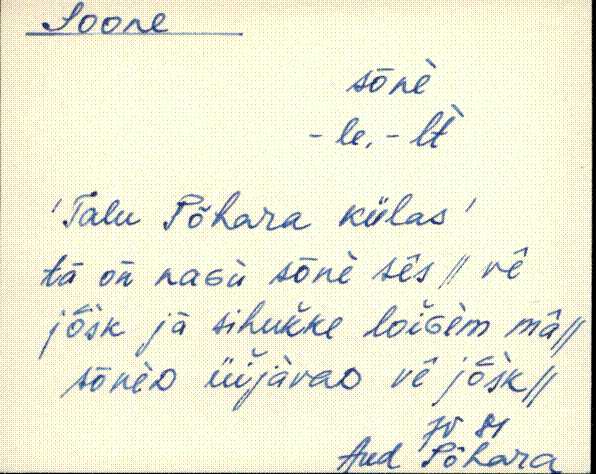 Soone
sōnè
-le, -lt̀
'Talu Põhara külas'
tā oñ naGù sōnè sês // vê
jõ̂sk jā sihukke loiGèm mâ //
sōnèD üijàvaD vê jõ̂sk //
JV 81
Aud Põhara